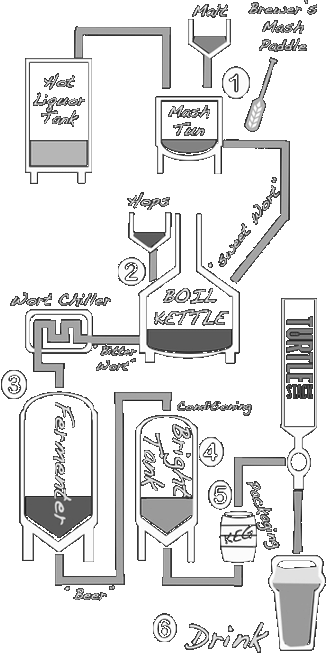 Malt
Brewer's
Mash
Paddle
Hot
Liquor
Tank
1
Mash
Tun
"Sweet Wort"
Hops
2
BOIL
KETTLE
Wort Chiller
"Bitter
Wort"
3
Fermenter
Conditioning
Bright
Tank
4
"Beer"
5
KEG
Packaging
TURTLE
6
Drink